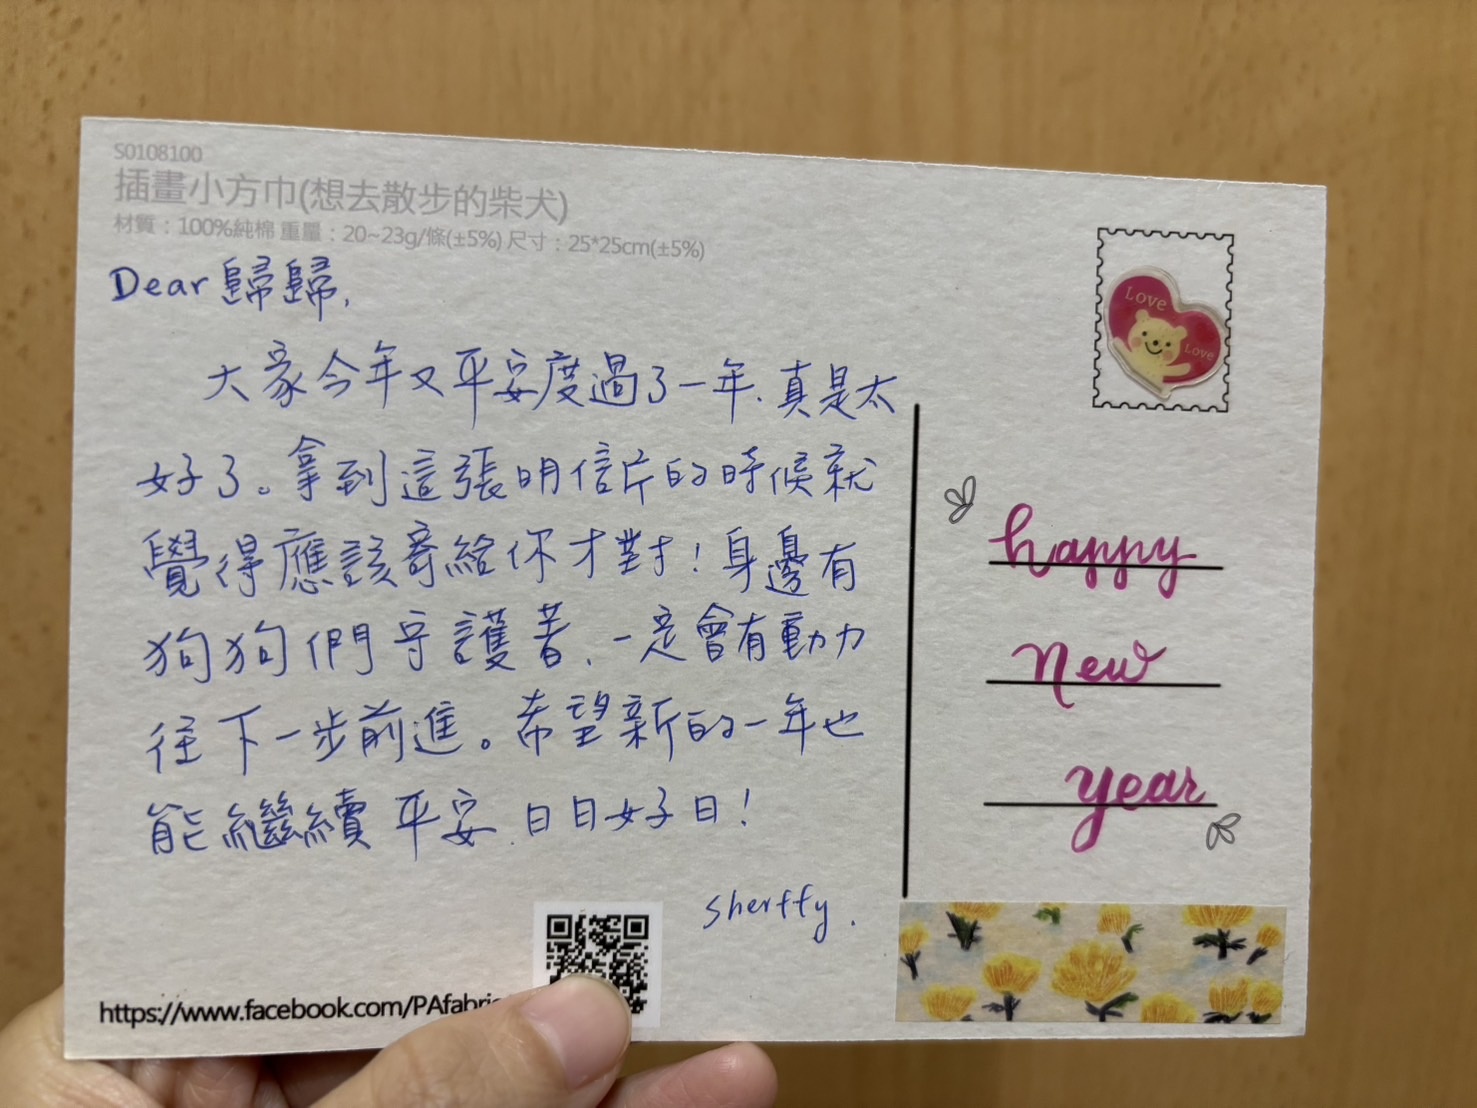 S0108100
插畫小方巾(想去散步的柴犬)
材質：100%純棉 重量：20~23g/條(±5%) 尺寸：25*25cm(±5%)
Dear 歸歸,
大家今年又平安度過了一年、真是太
好了。拿到這張明信片的時候就
覺得應該寄給你才對！身邊有
狗狗們守護著、一定會有動力
往下一步前進。希望新的一年也
能繼續平安、日日好日！
sherffy.
https://www.facebook.com/PAfabri
Love
Love
happy
new
year